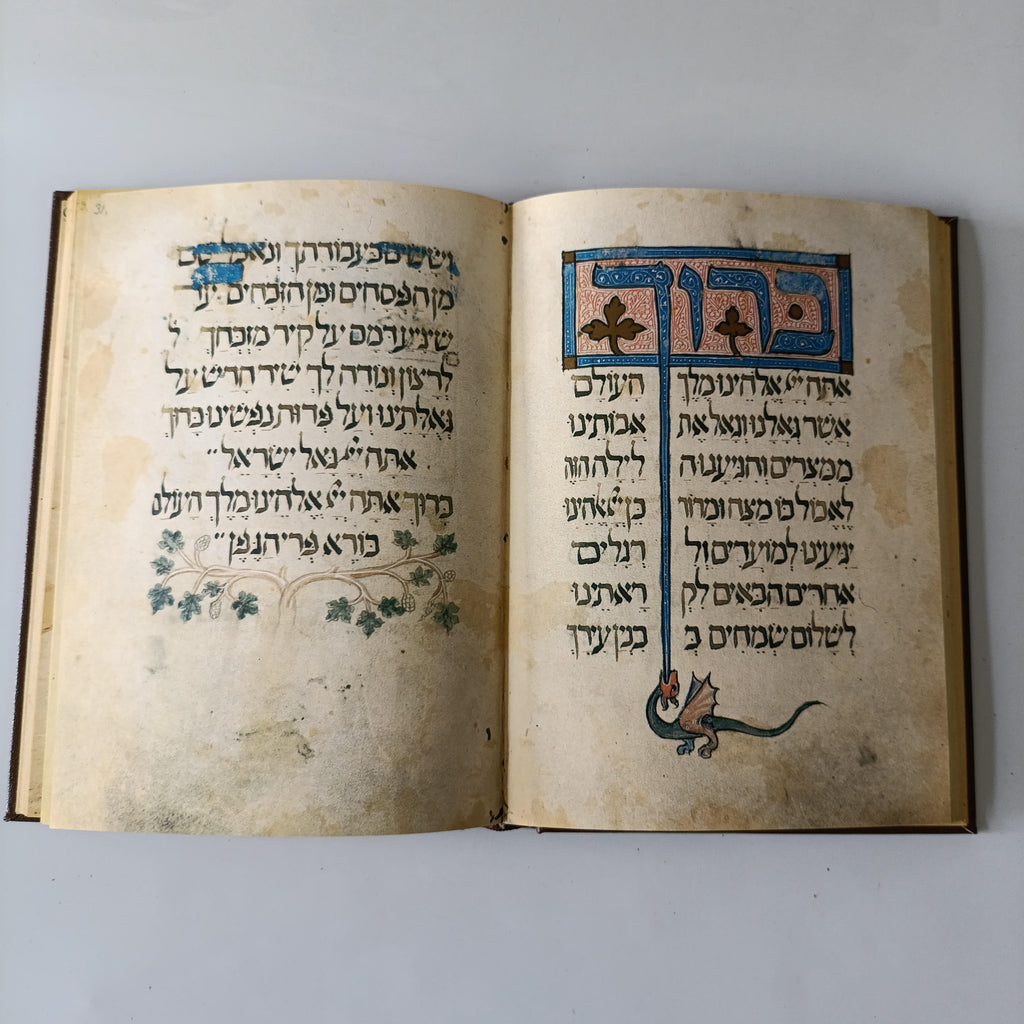 ברוך
אתה יי אלהינו מלך העולם
אשר גאלנו וגאל את אבותינו
ממצרים והגיענו ה לילה הזה
לאכול בו מצה ומרור כן יי אלהינו
יגיענו למועדים ול רגלים
אחרים הבאים לק ראתינו
לשלום שמחים ב בנין עירך
31.
וששים בעבודתך ונאכל שם
מן הפסחים ומן הזבחים
שיגיע דמם על קיר מזבחך ל
לרצון ונודה לך שיר חדש על
גאלתינו ועל פדות נפשינו ברוך
אתה יי גאל ישראל״
ברוך אתה יי אלהינו מלך העולם
בורא פרי הגפן״